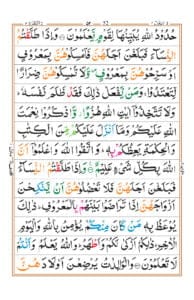 حُدُوْدُ اللّٰهِ يُبَيِّنُهَا لِقَوْمٍ يَّعْلَمُوْنَ وَاِذَا طَلَّقْتُمُ
النِّسَآءَ فَبَلَغْنَ اَجَلَهُنَّ فَاَمْسِكُوْهُنَّ بِمَعْرُوْفٍ
اَوْ سَرِّحُوْهُنَّ بِمَعْرُوْفٍ وَّلَا تُمْسِكُوْهُنَّ ضِرَارًا
لِّتَعْتَدُوْا وَمَنْ يَّفْعَلْ ذٰلِكَ فَقَدْ ظَلَمَ نَفْسَهٗ
وَلَا تَتَّخِذُوْٓا اٰيٰتِ اللّٰهِ هُزُوًا وَّاذْكُرُوْا نِعْمَتَ
اللّٰهِ عَلَيْكُمْ وَمَآ اَنْزَلَ عَلَيْكُمْ مِّنَ الْكِتٰبِ
وَالْحِكْمَةِ يَعِظُكُمْ بِهٖ وَاتَّقُوا اللّٰهَ وَاعْلَمُوْٓا اَنَّ
اللّٰهَ بِكُلِّ شَيْءٍ عَلِيْمٌ وَاِذَا طَلَّقْتُمُ النِّسَآءَ
فَبَلَغْنَ اَجَلَهُنَّ فَلَا تَعْضُلُوْهُنَّ اَنْ يَّنْكِحْنَ
اَزْوَاجَهُنَّ اِذَا تَرَاضَوْا بَيْنَهُمْ بِالْمَعْرُوْفِ ذٰلِكَ
يُوْعَظُ بِهٖ مَنْ كَانَ مِنْكُمْ يُؤْمِنُ بِاللّٰهِ وَالْيَوْمِ
الْاٰخِرِ ذٰلِكُمْ اَزْكٰى لَكُمْ وَاَطْهَرُ وَاللّٰهُ يَعْلَمُ وَاَنْتُمْ
لَا تَعْلَمُوْنَ وَالْوَالِدٰتُ يُرْضِعْنَ اَوْلَادَهُنَّ